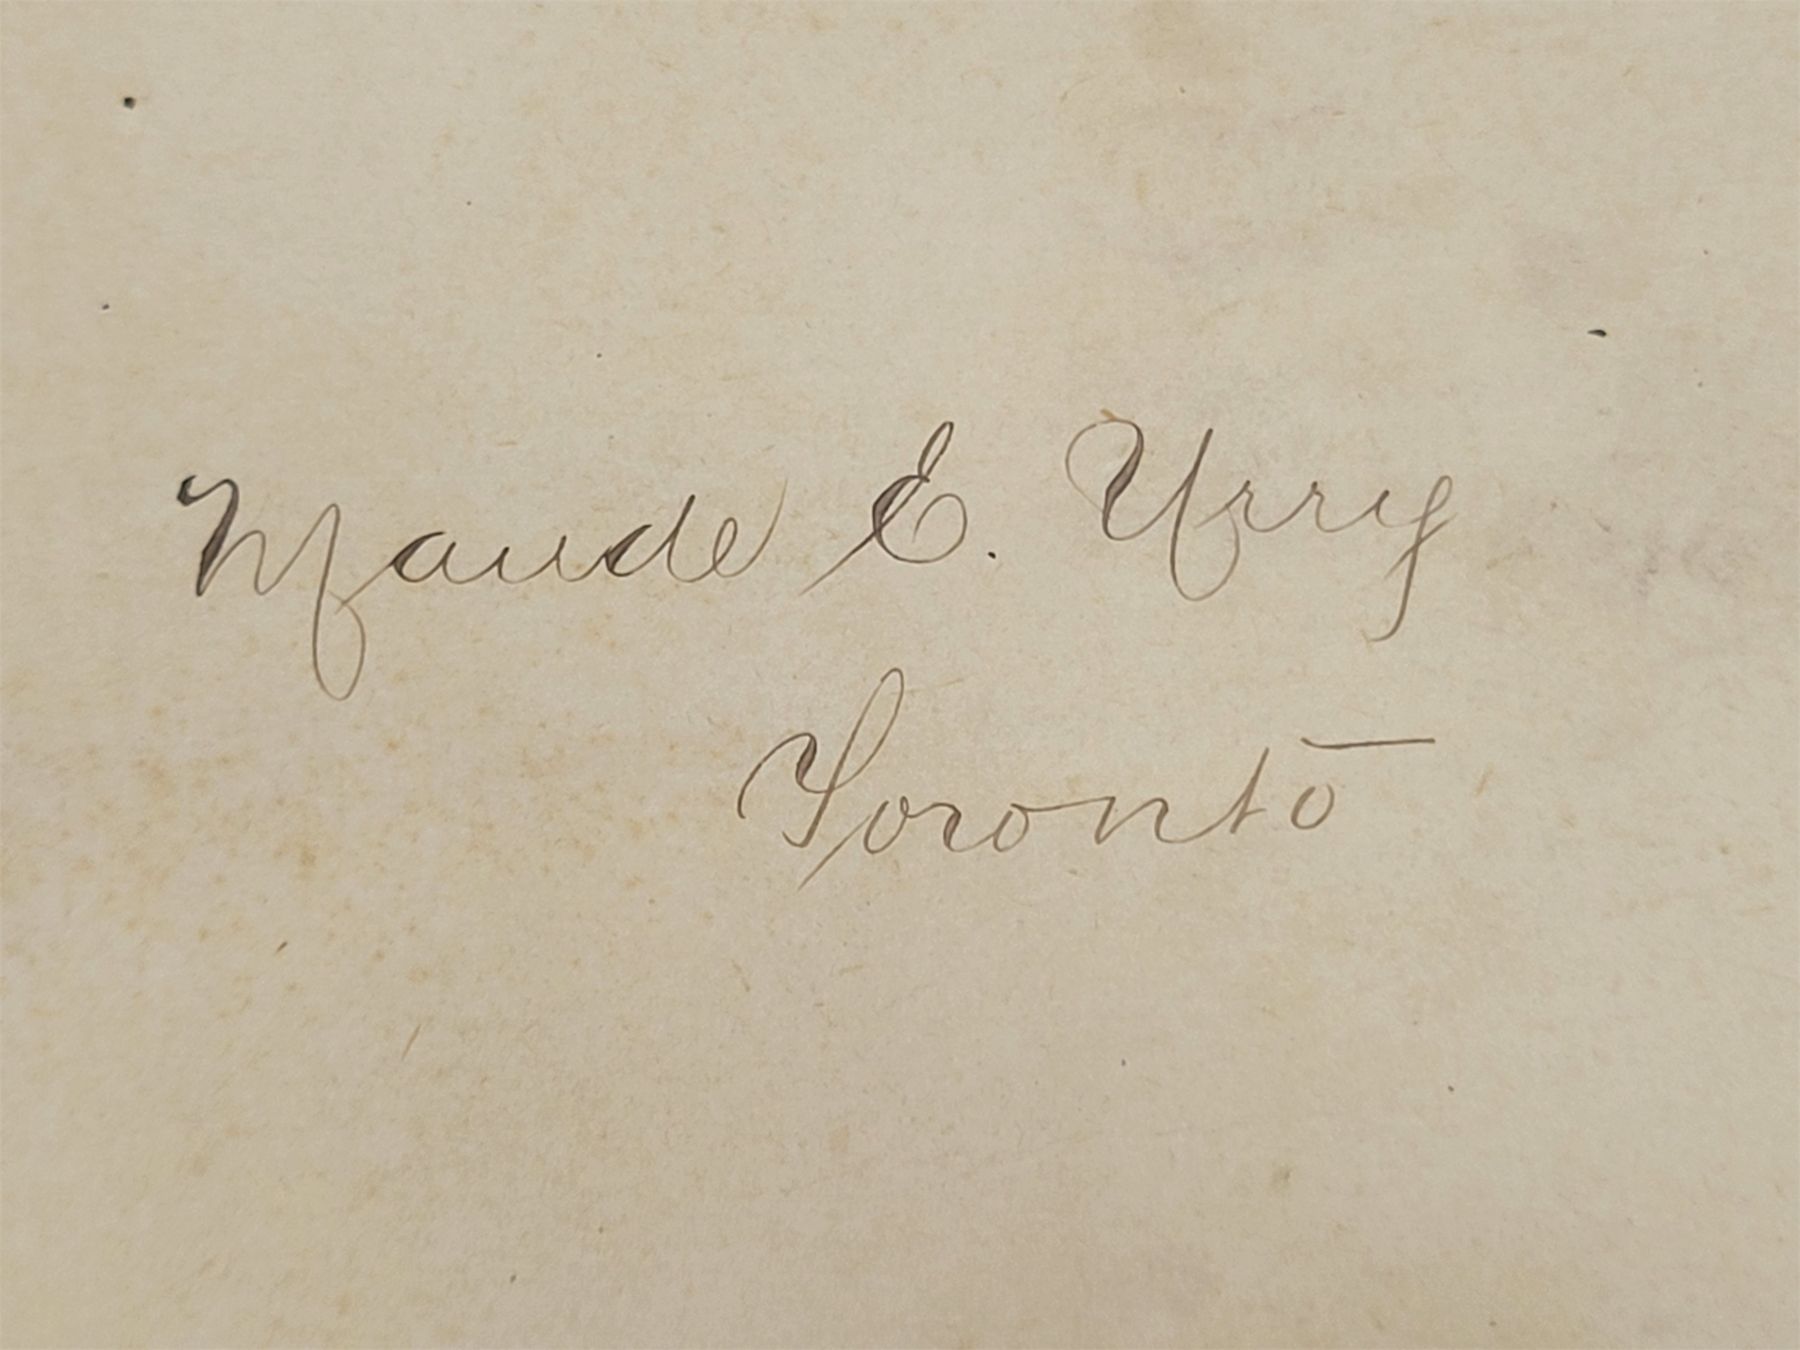 Maude E. Urry
Toronto